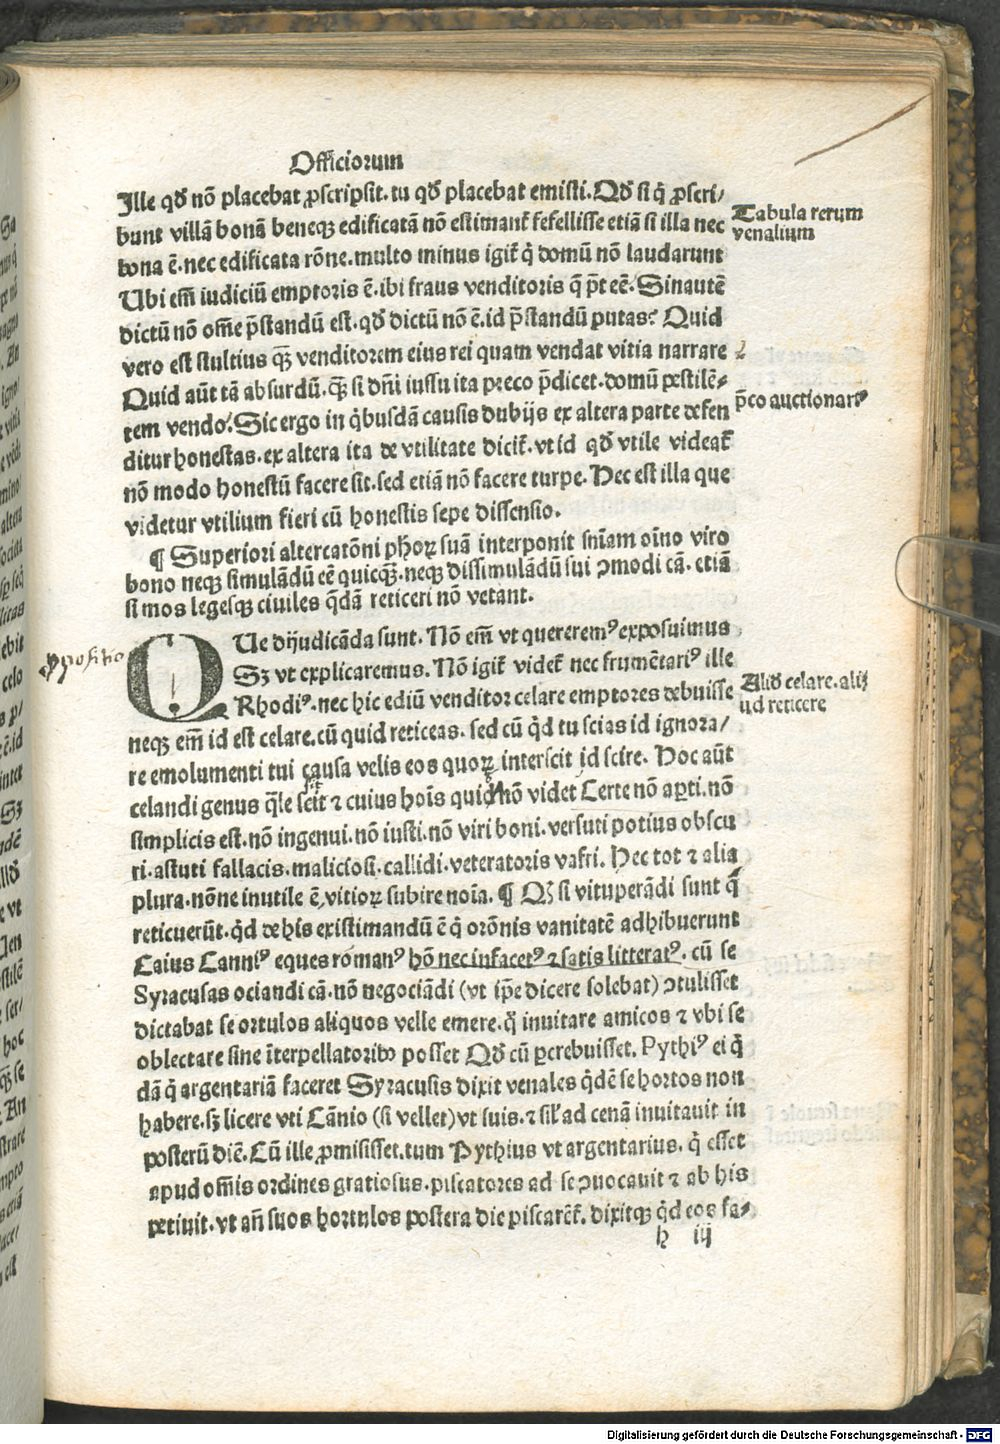 Officiorum
Ille qď nō placebat ꝓscripsit. tu qď placebat emisti. Qď si q̄ ꝓscri/
bunt villā bonā beneqꝫ edificatā nō estimant̄ fefellisse etiā si illa nec
bona ē. nec edificata rōne. multo minus igit̄ q̄ domū nō laudarunt
Ubi em̄ iudiciū emptoris ē. ibi fraus venditoris q̄ pt̄ eē. Sinautē
dictū nō om̄e p̄standū est. qď dictū nō ē. id p̄standū putas? Quid
vero est stultius qꝫ̄ venditorem eius rei quam vendat vitia narrare
Quid aūt tā absurdū. qꝫ̄ si dn̄i iussu ita preco p̄dicet. domū pestilē⸗
tem vendo? Sic ergo in q̇busdā causis dubijs ex altera parte defen
ditur honestas. ex altera ita de vtilitate dicit̄. vt id qď vtile videat̄
nō modo honestū facere sit. sed etiā nō facere turpe. Hec est illa que
videtur vtilium fieri cū honestis sepe dissensio.
Tabula rerum
venalium
p̄co auctionariꝰ
¶ Superiori altercatōni phoꝝ suā interponit sn̄iam oīno viro
bono neqꝫ simulādū eē quicqꝫ̄. neqꝫ dissimulādū sui ꝯmodi cā. etiā
si mos legesqꝫ ciuiles q̇dā reticeri nō vetant.
QUe dijudicāda sunt. Nō em̄ vt quereremꝰ exposuimus
Sꝫ vt explicaremus. Nō igit̄ videt̄ nec frumētariꝰ ille
Rhodiꝰ. nec hic ediū venditor celare emptores debuisse
neqꝫ em̄ id est celare. cū quid reticeas. sed cū q̇d tu scias id ignora/
re emolumenti tui causa velis eos quoꝝ intersit id scire. Hoc aūt
celandi genus q̄le sit ⁊ cuius hoīs quis nō videt Certe nō aꝑti. nō
simplicis est. nō ingenui. nō iusti. nō viri boni. versuti potius obscu
ri. astuti fallacis. maliciosi. callidi. veteratoris vafri. Hec tot ⁊ alia
plura. nōne inutile ē vitioꝝ subire noīa. ¶ Qꝫ si vituperādi sunt q̄
reticuerūt. q̇d de his existimandū ē q̄ orōnis vanitatē adhibuerunt
Caius Canniꝰ eques romanꝰ hō nec infacetꝰ ⁊ satis litteratꝰ. cū se
Syracusas ociandi cā. nō negociādi (vt ip̄e dicere solebat) ꝯtulisset
dictabat se ortulos aliquos velle emere. q̄ inuitare amicos ⁊ vbi se
oblectare sine īterpellatoribꝰ posset Qď cū ꝑcrebuisset. Pythiꝰ ei q̇
dā q̄ argentariā faceret Syracusis dixit venales q̇dē se hortos non
habere. sꝫ licere vti Cānio (si vellet) vt suis. ⁊ sil̄ ad cenā inuitauit in
posterū diē. Cū ille ꝓmisisset. tum Pythius vt argentarius. q̄ esset
apud om̄is ordines gratiosus. piscatores ad se ꝯuocauit ⁊ ab his
petiuit. vt an̄ suos hortulos postera die piscarēt̄. dixitqꝫ q̇d eos fa⸗
Aliď celare. ali
ud reticere
ppositio
h iij
Digitalisierung gefördert durch die Deutsche Forschungsgemeinschaft - DFG